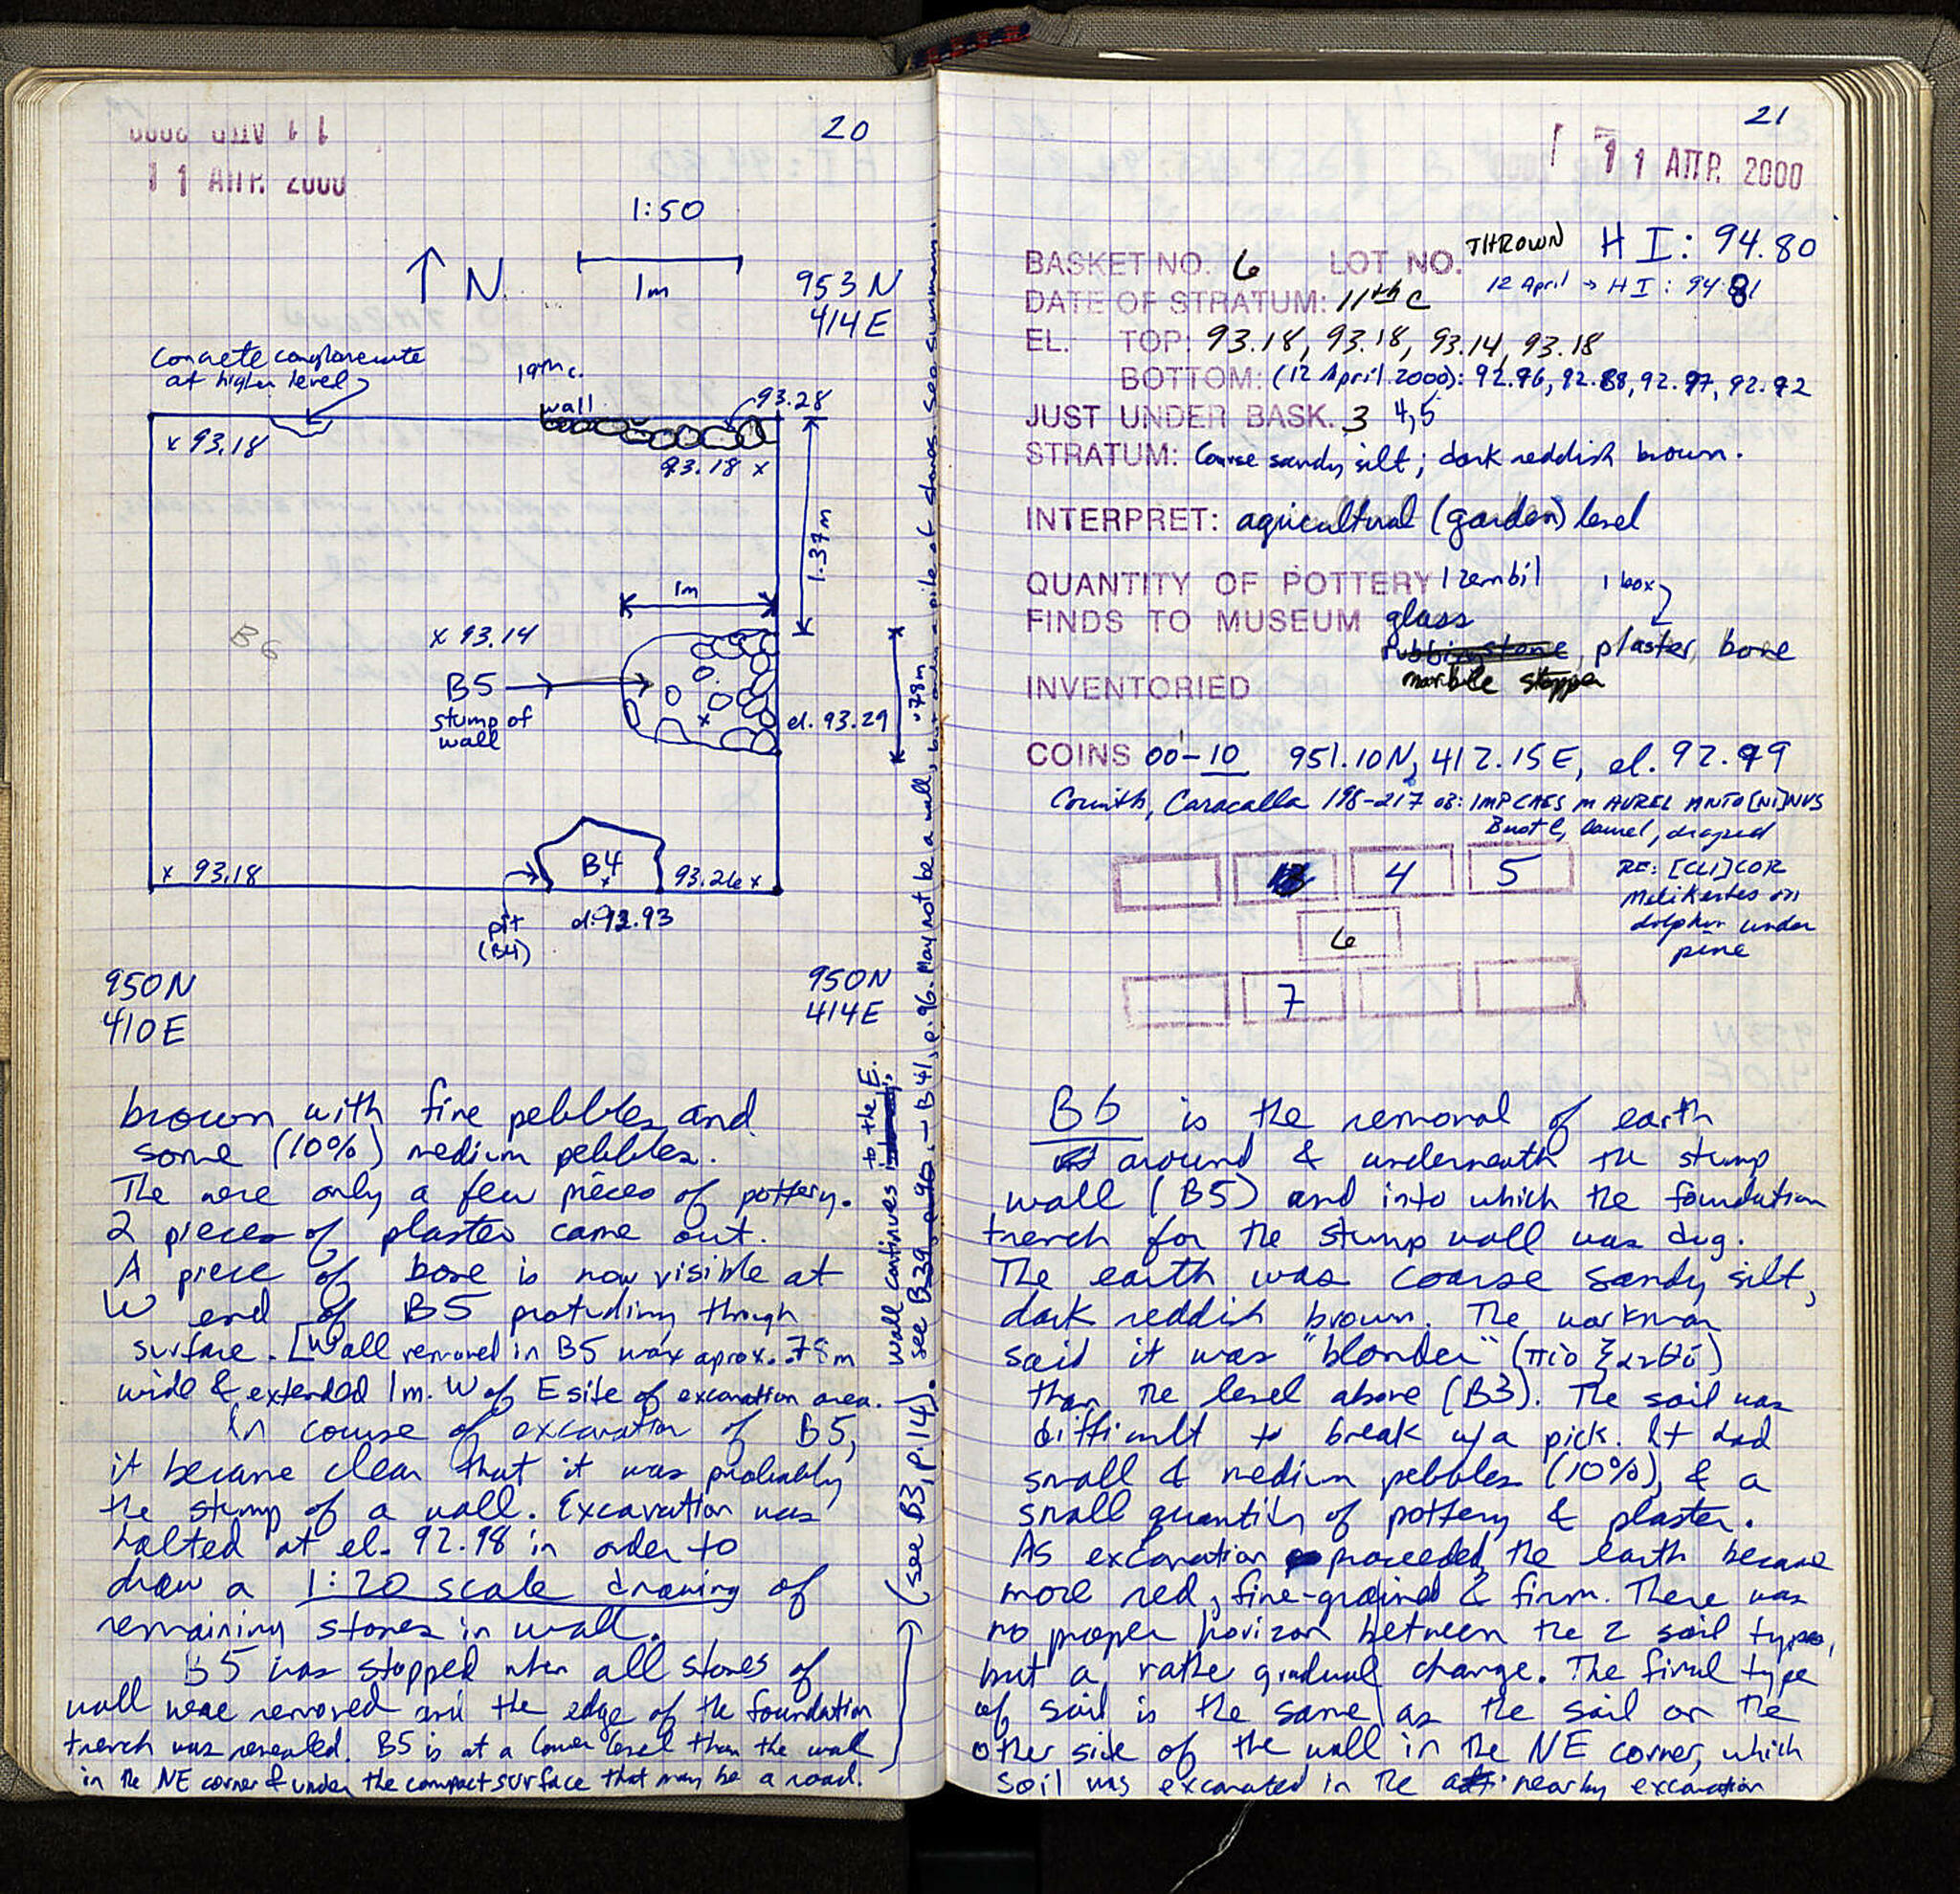 20
11 ΑΠΡ. 2000
1:50
↑ N
1m
953 N
414 E
Concrete conglomerate
at higher level
19th c.
wall
93.28
x 93.18
93.18 x
1.37m
1m
B6
x 93.14
B5
stump of
wall
el. 93.29
.78m
x 93.18
B4
93.26 x
pit
(B4)
el. 92.93
950N
410E
950N
414E
brown with fine pebbles and
some (10%) medium pebbles.
The were only a few pieces of pottery.
2 pieces of plaster came out.
A piece of bone is now visible at
W end of B5 protruding through
surface. [Wall removed in B5 was aprox. .78m
wide & extended 1m. W of E side of excavation area.
In course of excavation of B5,
it became clear that it was probably
the stump of a wall. Excavation was
halted at el. 92.98 in order to
draw a 1:20 scale drawing of
remaining stones in wall.
B5 was stopped when all stones of
wall were removed and the edge of the foundation
trench was revealed. B5 is at a lower level than the wall
in the NE corner & under the compact surface that may be a road.
(see B3, p.14).
wall continues to the E.
see B39, p. 90. → B41, p. 96. May not be a wall, but only a pile of stones. see summary.
21
11 ΑΠΡ. 2000
BASKET NO. 6 LOT NO. THROWN H I: 94.80
12 April → H I: 94.81
DATE OF STRATUM: 11th C
EL. TOP: 93.18, 93.18, 93.14, 93.18
BOTTOM: (12 April 2000): 92.96, 92.88, 92.97, 92.92
JUST UNDER BASK. 3 4,5
STRATUM: Coarse sandy silt; dark reddish brown.
INTERPRET: agricultural (garden) level
QUANTITY OF POTTERY 1 zembil 1 box
FINDS TO MUSEUM glass
rubbing stone, plaster, bone
INVENTORIED marble stopper
COINS 00-10 951.10N, 412.15E, el. 92.99
Corinth, Caracalla 198-217 OB: IMP CAES M AUREL ANTO[NI]NVS
Bust l, laurel, draped
RE: [CLI]COR
Melikertes on
dolphin under
pine
4 5
6
7
B6 is the removal of earth
around & underneath the stump
wall (B5) and into which the foundation
trench for the stump wall was dug.
The earth was coarse sandy silt,
dark reddish brown. The workman
said it was "blonder" (πιο ξανθό)
than the level above (B3). The soil was
difficult to break w/a pick. It had
small & medium pebbles (10%), & a
small quantity of pottery & plaster.
As excavation proceeded, the earth became
more red, fine-grained & firm. There was
no proper horizon between the 2 soil types,
but a rather gradual change. The final type
of soil is the same as the soil on the
other side of the wall in the NE corner, which
soil was excavated in the nearby excavation